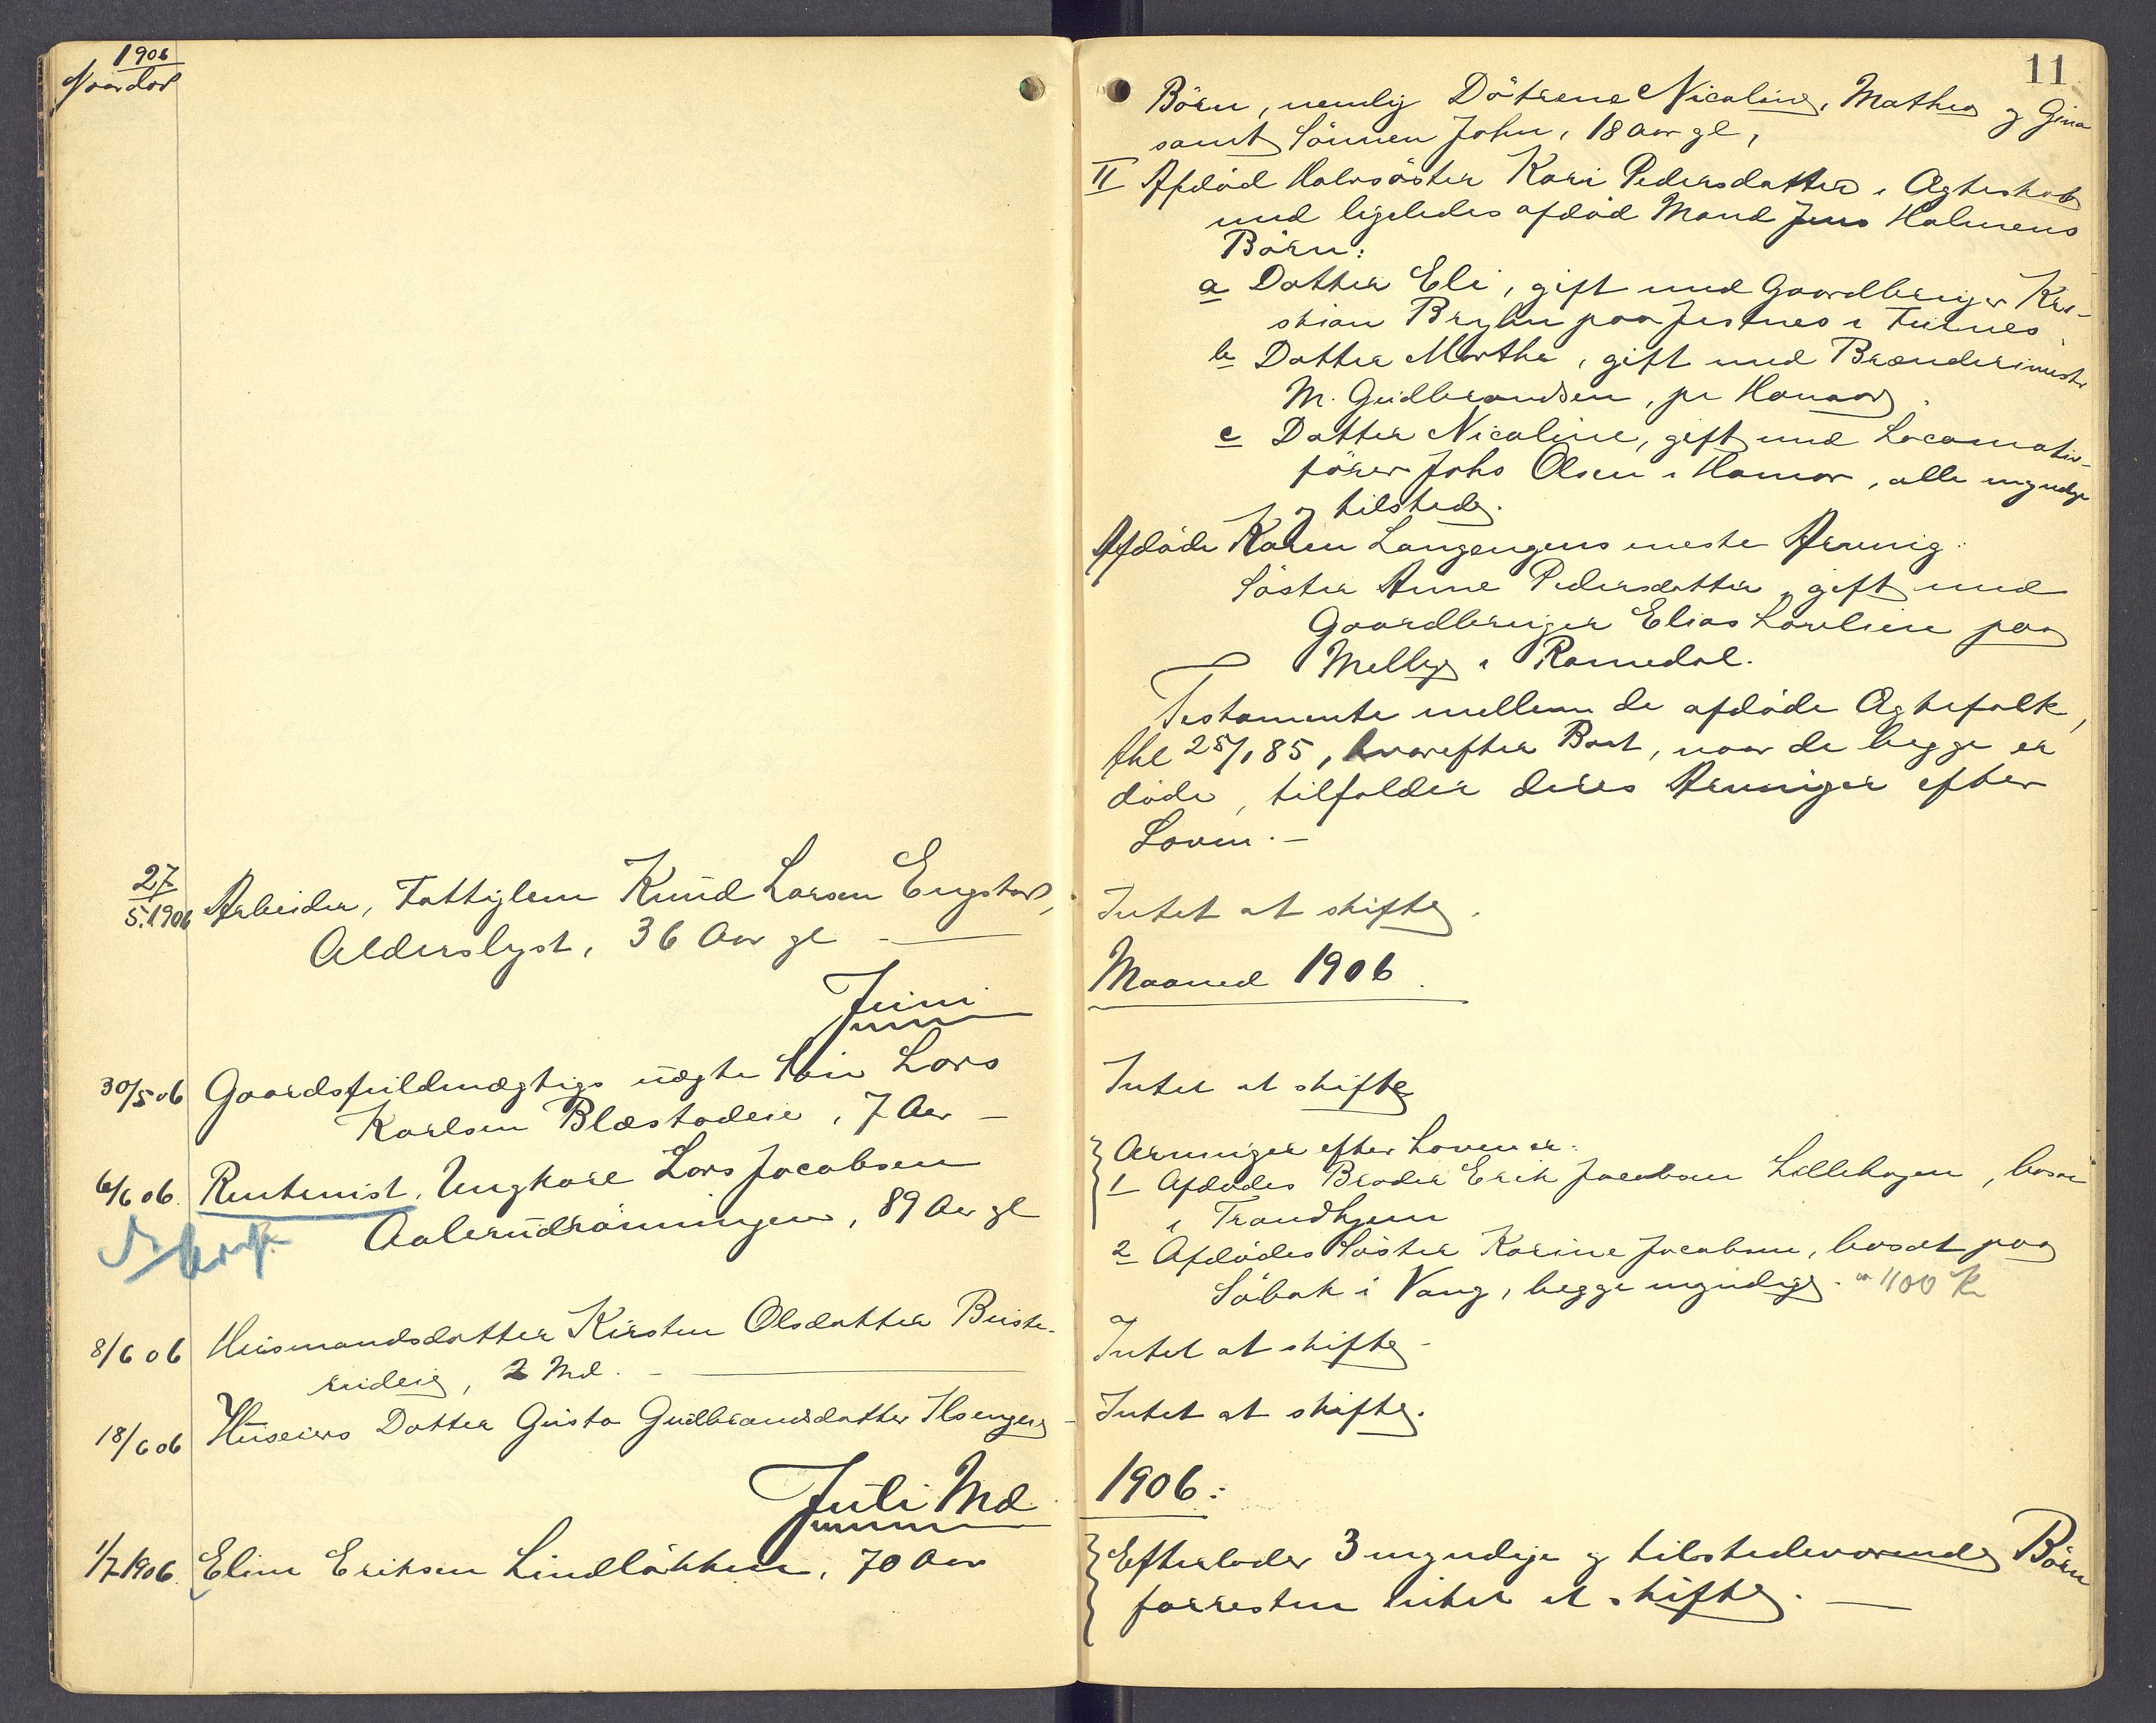 1906
Naar død
27/5.1906 Arbeider, Fattiglem Knud Larsen Engstad,
Alderslyst, 36 Aar gl -
Juni
30/5 06 Gaardsfuldmægtigs uægte Søn Lars
Karlsen Blæstadeie, 7 Aar -
6/6 06. Rentenist, Ungkarl Lars Jacobsen
Aalerudrønningen, 89 Aar gl
8/6 06 Husmandsdatter Kirsten Olsdatter Buste-
rudeie, 2 Md. -
18/6 06 Huseiers Datter Gusta Gudbrandsdatter Ilsengen -
Juli Md
1/7 1906. Eline Eriksen Lindløkken, 70 Aar
11
Børn, nemlig Døtrene Nicoline, Mathea og Gina
samt Sønnen John, 18 Aar gl,
II Afdød Halvsøster Kari Pedersdatter i Ægteskab
med ligeledes afdød Mand Jens Holmens
Børn:
a Datter Eli, gift med Gaardbruger Kri-
stian Bryhn paa Jesnes i Furnes
b Datter Marthe, gift med Brænderimester
M. Gudbrandsen, pr Hamar.
c Datter Nicoline, gift med Locomotiv-
fører Johs Olsen i Hamar, alle myndige
og tilstede.
Afdøde Karen Langengens eneste Arving:
Søster Anne Pedersdatter, gift med
Gaardbruger Elias paa
Melby i Romedal.
Testamente mellem de afdøde Ægtefolk,
thl 25/1 85, hvorefter Boet, naar de begge er
døde, tilfalder deres Arvinger efter
Loven. -
Intet at skifte.
Maaned 1906.
Intet at skifte
Arvinger efter Loven er:
1 Afdødes Broder Erik Jacobsen Lillehagen, bosat
i Trondhjem
2 Afdødes Søster Karine Jacobsen, bosat paa
Søbak i Vang, begge myndige. 1100 Kr
Intet at skifte -
Intet at skifte.
1906:
Efterlader 3 myndige og tilstedeværende Børn
forresten intet at skifte. -